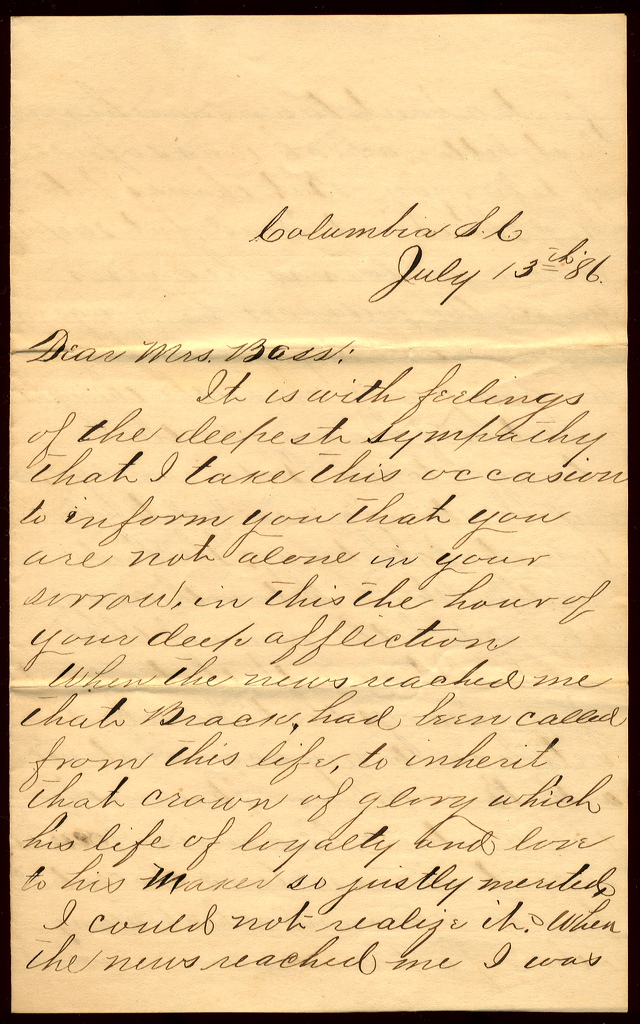 Columbia S.C
July 13th '86.
Dear Mrs. Bass:
It is with feelings
of the deepest sympathy
that I take this occasion
to inform you that you
are not alone in your
sorrow, in this the hour of
your deep affliction
When the news reached me
that Brack, had been called
from this life, to inherit
that crown of glory which
his life of loyalty and love
to his Maker so justly merited,
I could not realize it. When
the news reached me I was